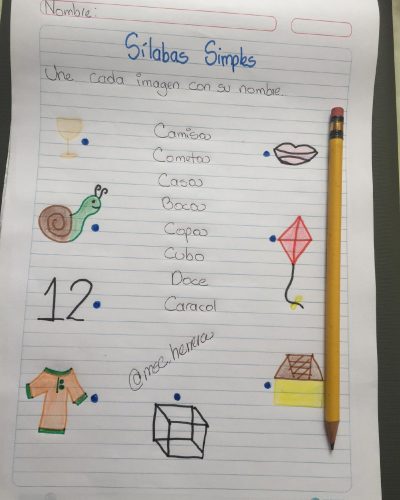 Nombre:
Sílabas Simples
Une cada imagen con su nombre.
Camisa
Cometa
Casa
Boca
Copa
Cubo
Doce
Caracol
12
@mec.herrera